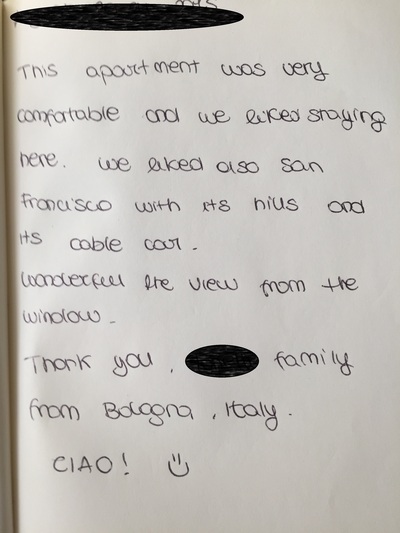 This apartment was very
comfortable and we liked staying
here. We liked also San
Francisco with its hills and
its cable car.
Wonderfull the view from the
window.
Thank you, family
from Bologna, Italy.
CIAO!